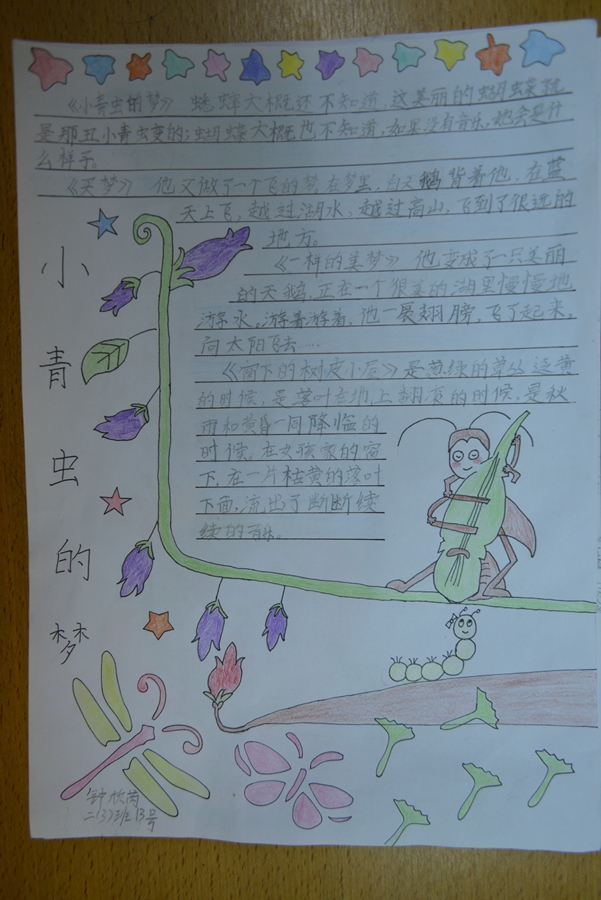 《小青虫的梦》 蟋蟀大概还不知道,这美丽的蝴蝶就
是那丑小青虫变的;蝴蝶大概也不知道,如果没有音乐,她会是什
么样子。
《天梦》 他又做了一个飞的梦,在梦里,白天鹅背着他,在蓝
天上飞,越过湖水、越过高山,飞到了很远的
地方。
《一样的美梦》 他变成了一只美丽
的天鹅,正在一个很美的湖里慢慢地
游水,游着游着,他一展翅膀,飞了起来,
向太阳飞去……
《窗下的树皮小屋》是葱绿的草丛泛黄
的时候,是落叶在地上翻
的时候,是秋
雨和黄昏一同降临的
时候,在女孩家的窗
下,在一片枯黄的落叶
下面,流出了断断续
续的音乐。
小青虫的梦
二(3)班 13号